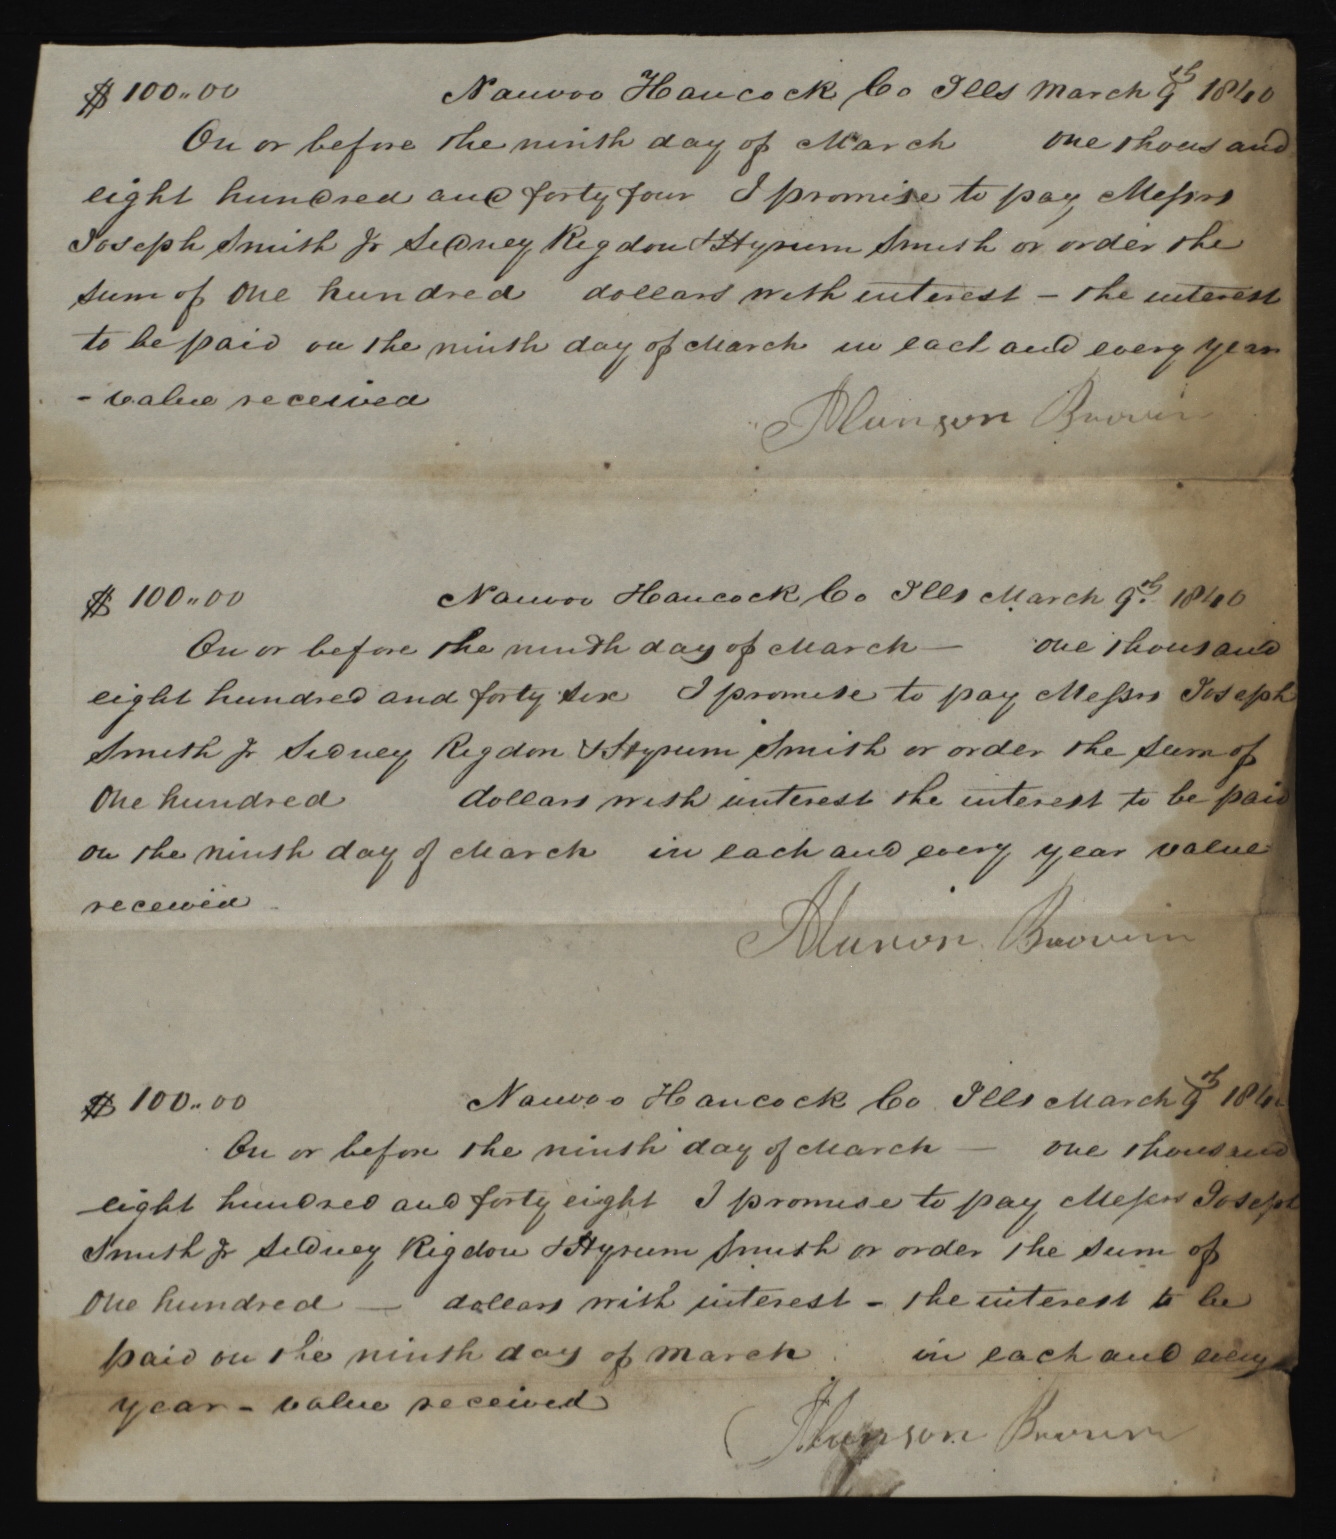 $ 100..00 Nauvoo Hancock Co Ills March 9th 1840
On or before the ninth day of March one thousand
eight hundred and forty four I promise to pay Messrs
Joseph Smith Jr Sidney Rigdon & Hyrum Smith or order the
sum of One hundred dollars with interest – the interest
to be paid on the ninth day of March in each and every year
- value received
Alunson Brown
$ 100..00 Nauvoo Hancock Co Ills March 9th 1840
On or before the ninth day of March — one thousand
eight hundred and forty six I promise to pay Messrs Joseph
Smith Jr Sidney Rigdon & Hyrum Smith or order the sum of
One hundred dollars with interest the interest to be paid
on the ninth day of March in each and every year value
received
Alunson Brown
$ 100..00 Nauvoo Hancock Co Ills March 9th 1840
On or before the ninth day of March — one thousand
eight hundred and forty eight I promise to pay Messrs Joseph
Smith Jr Sidney Rigdon & Hyrum Smith or order the sum of
One hundred — dollars with interest - the interest to be
paid on the ninth day of march in each and every
year - value received
Alunson Brown